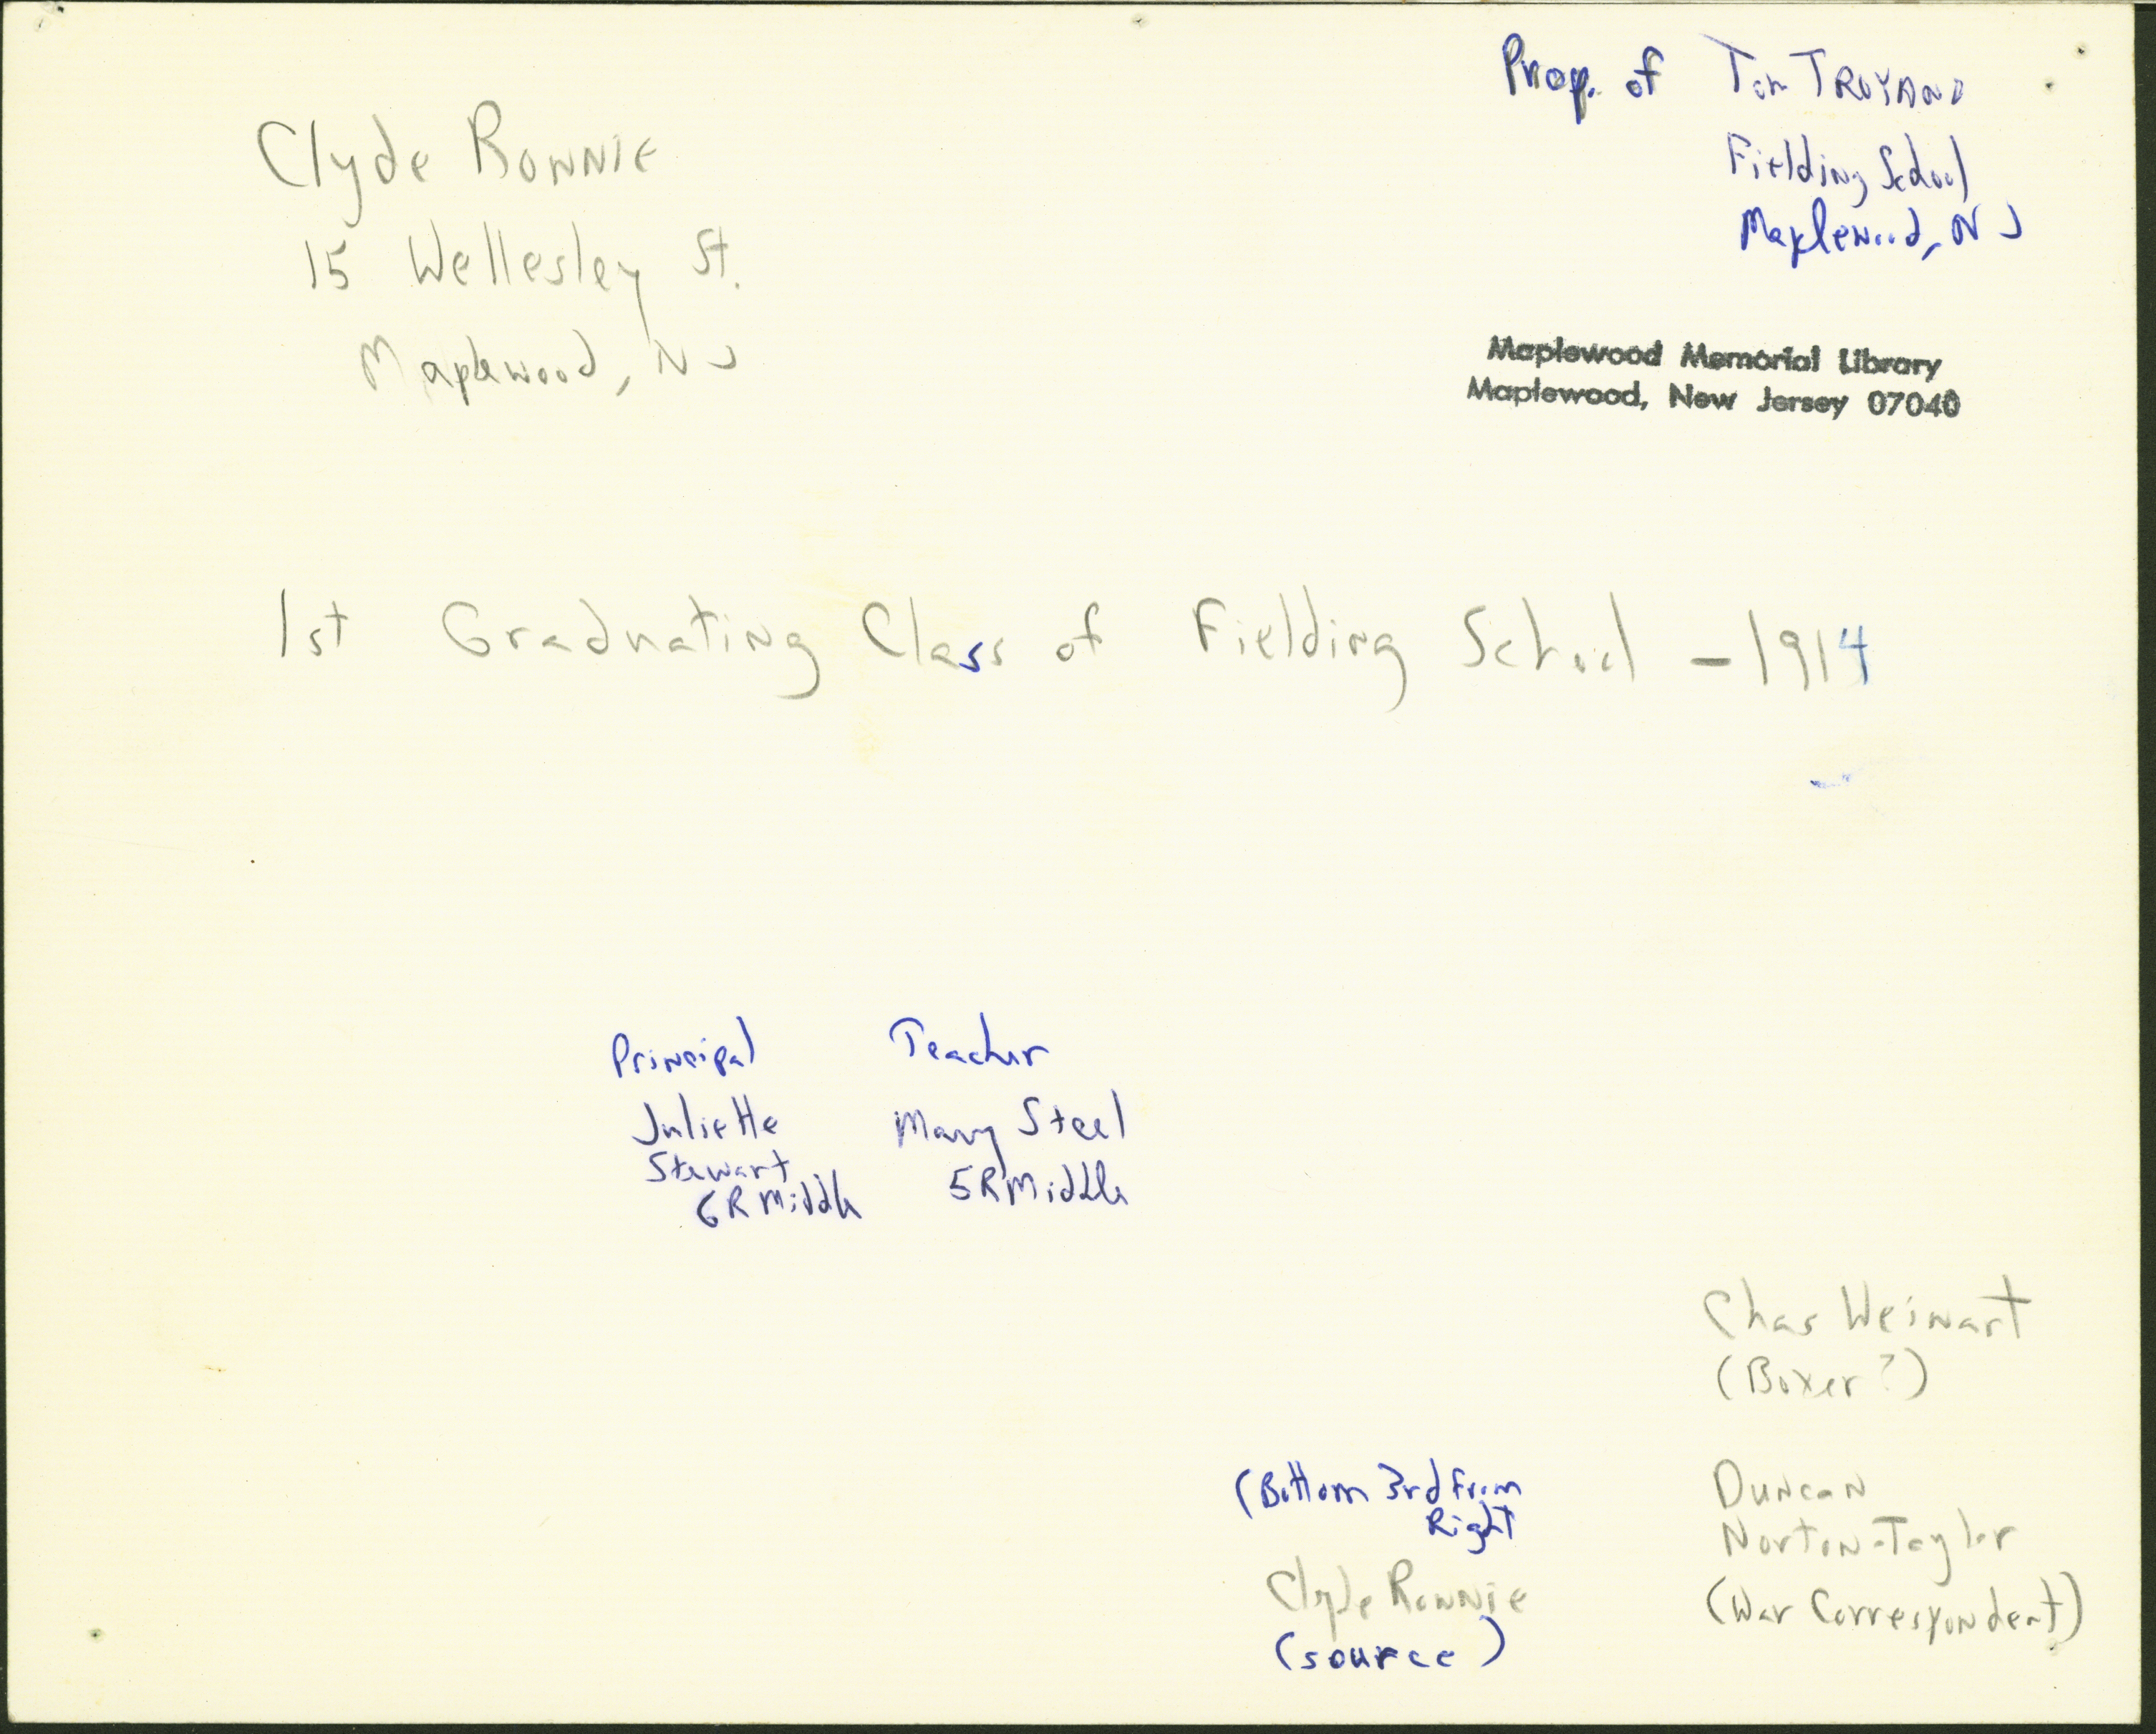 Clyde Ronnie
15 Wellesley St.
Maplewood, NJ
Prop. of Tom TROYANO
Fielding School
Maplewood, NJ
Maplewood Memorial Library
Maplewood, New Jersey 07040
1st Graduating Class of Fielding School - 1914
Principal
Juliette
Stewart
6R Middle
Teacher
Mary Steel
5R Middle
Chas Weinart
(Boxer?)
(Bottom 3rd From
Right
Clyde Ronnie
(source)
Duncan
Norton-Taylor
(War Correspondent)